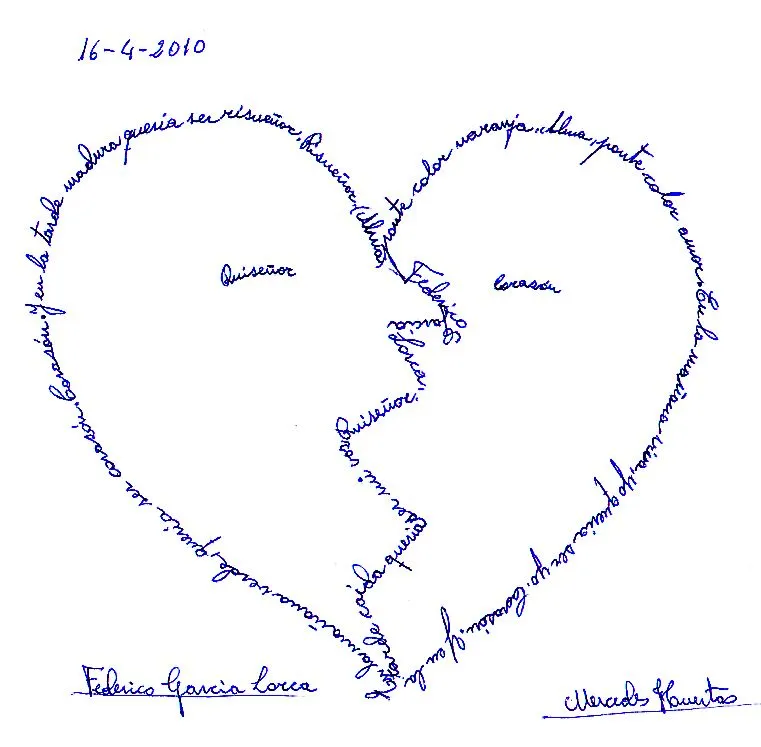 16-4-2010
En la mañana verde, quería ser corazón. Corazón. Y en la tarde madura quería ser risueñor. Risueñor. (Alma, ponte color naranja. Alma, ponte color amor. En la mañana viva, yo quería ser yo. Corazón. Y en la tarde caída quería ser mi voz. Ruiseñor.
Federico García Lorca.
Ruiseñor
Corazón
Federico García Lorca
Mercedes Huertas